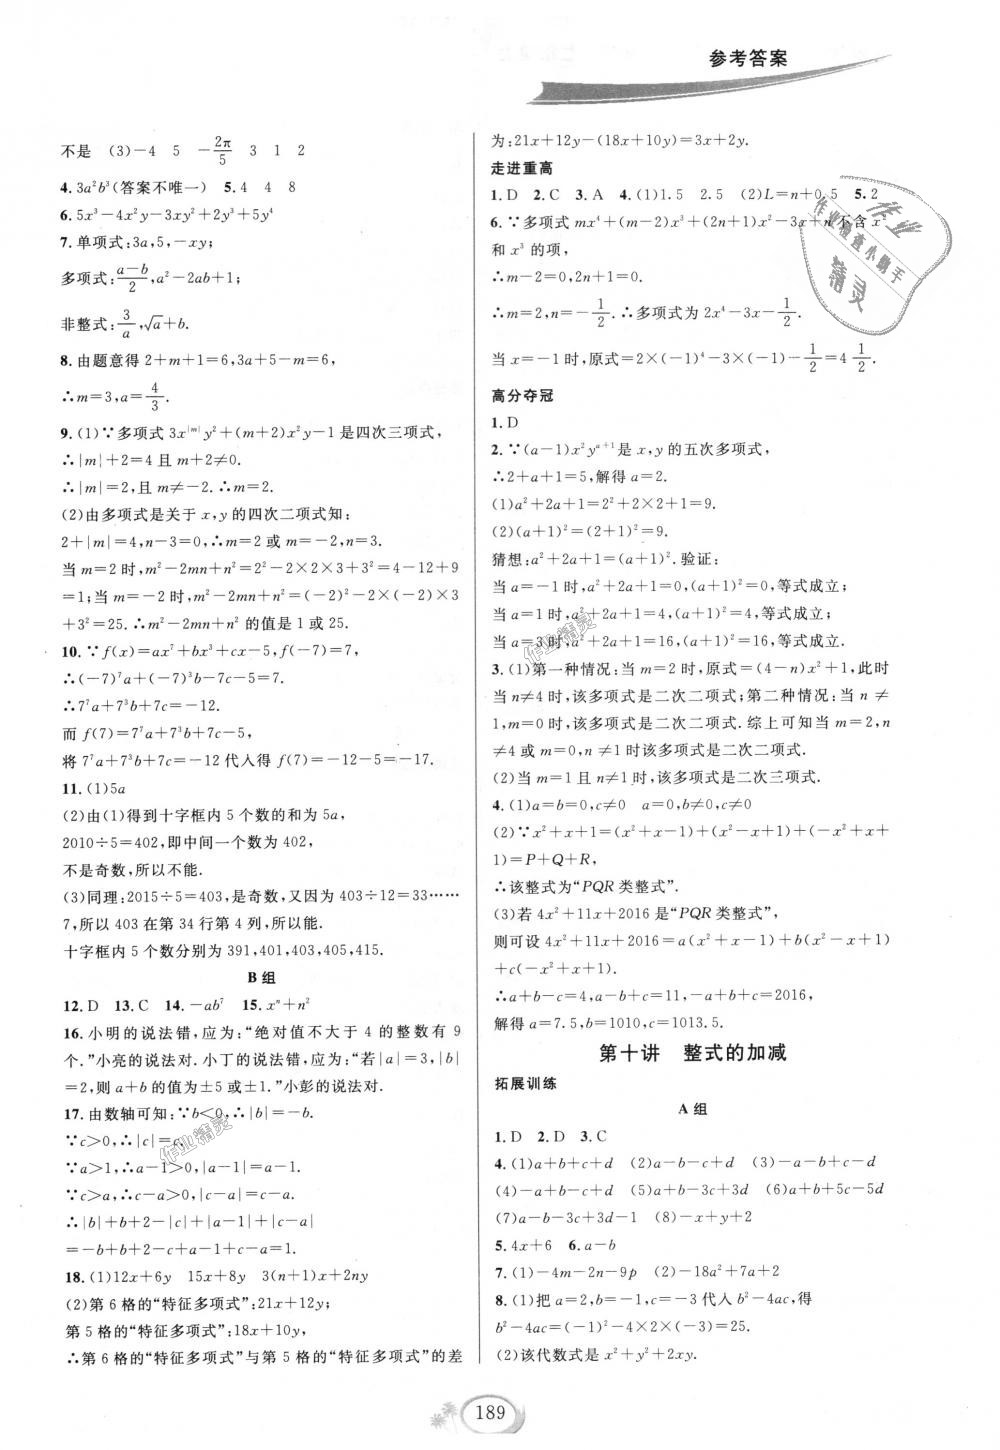 参考答案
不是 (3)-4 5 -2π/5 3 1 2
4. 3a²b³(答案不唯一) 5. 4 4 8
6. 5x³-4x²y-3xy²+2y³+5y⁴
7. 单项式:3a,5,-xy;
多项式:(a-b)/2,a²-2ab+1;
非整式:3/a,√a+b.
8. 由题意得 2+m+1=6,3a+5-m=6,
∴m=3,a=4/3.
9. (1)∵多项式 3x^|m|y²+(m+2)x²y-1 是四次三项式,
∴|m|+2=4 且 m+2≠0.
∴|m|=2,且 m≠-2. ∴m=2.
(2)由多项式是关于 x,y 的四次二项式知:
2+|m|=4,n-3=0,∴m=2 或 m=-2,n=3.
当 m=2 时,m²-2mn+n²=2²-2×2×3+3²=4-12+9
=1;当 m=-2 时,m²-2mn+n²=(-2)²-2×(-2)×3
+3²=25. ∴m²-2mn+n² 的值是 1 或 25.
10. ∵f(x)=ax⁷+bx³+cx-5,f(-7)=7,
∴(-7)⁷a+(-7)³b-7c-5=7.
∴7⁷a+7³b+7c=-12.
而 f(7)=7⁷a+7³b+7c-5,
将 7⁷a+7³b+7c=-12 代入得 f(7)=-12-5=-17.
11. (1)5a
(2)由(1)得到十字框内 5 个数的和为 5a,
2010÷5=402,即中间一个数为 402,
不是奇数,所以不能.
(3)同理:2015÷5=403,是奇数,又因为 403÷12=33……
7,所以 403 在第 34 行第 4 列,所以能.
十字框内 5 个数分别为 391,401,403,405,415.
B 组
12. D 13. C 14. -ab⁷ 15. xⁿ+n²
16. 小明的说法错,应为:“绝对值不大于 4 的整数有 9
个.”小亮的说法对. 小丁的说法错,应为:“若|a|=3,|b|
=2,则 a+b 的值为±5 或±1.”小彭的说法对.
17. 由数轴可知:∵b<0,∴|b|=-b.
∵c>0,∴|c|=c.
∵a>1,∴a-1>0,|a-1|=a-1.
∵c>a,∴c-a>0,|c-a|=c-a.
∴|b|+b+2-|c|+|a-1|+|c-a|
=-b+b+2-c+a-1+c-a=1.
18. (1)12x+6y 15x+8y 3(n+1)x+2ny
(2)第 6 格的“特征多项式”:21x+12y;
第 5 格的“特征多项式”:18x+10y,
∴第 6 格的“特征多项式”与第 5 格的“特征多项式”的差
为:21x+12y-(18x+10y)=3x+2y.
走进重高
1. D 2. C 3. A 4. (1)1.5 2.5 (2)L=n+0.5 5. 2
6. ∵多项式 mx⁴+(m-2)x³+(2n+1)x²-3x+n 不含 x²
和 x³ 的项,
∴m-2=0,2n+1=0.
∴m=2,n=-1/2. ∴多项式为 2x⁴-3x-1/2.
当 x=-1 时,原式=2×(-1)⁴-3×(-1)-1/2=4 1/2.
高分夺冠
1. D
2. ∵(a-1)x²y^(a+1)是 x,y 的五次多项式,
∴2+a+1=5,解得 a=2.
(1)a²+2a+1=2²+2×2+1=9.
(2)(a+1)²=(2+1)²=9.
猜想:a²+2a+1=(a+1)². 验证:
当 a=-1 时,a²+2a+1=0,(a+1)²=0,等式成立;
当 a=1 时,a²+2a+1=4,(a+1)²=4,等式成立;
当 a=3 时,a²+2a+1=16,(a+1)²=16,等式成立.
3. (1)第一种情况:当 m=2 时,原式=(4-n)x²+1,此时
当 n≠4 时,该多项式是二次二项式;第二种情况:当 n≠
1,m=0 时,该多项式是二次二项式. 综上可知当 m=2,n
≠4 或 m=0,n≠1 时该多项式是二次二项式.
(2)当 m=1 且 n≠1 时该多项式是二次三项式.
4. (1)a=b=0,c≠0 a=0,b≠0,c≠0
(2)∵x²+x+1=(x²+x-1)+(x²-x+1)+(-x²+x+
1)=P+Q+R,
∴该整式为“PQR 类整式”.
(3)若 4x²+11x+2016 是“PQR 类整式”,
则可设 4x²+11x+2016=a(x²+x-1)+b(x²-x+1)
+c(-x²+x+1)
∴a+b-c=4,a-b+c=11,-a+b+c=2016,
解得 a=7.5,b=1010,c=1013.5.
第十讲 整式的加减
拓展训练
A 组
1. D 2. D 3. C
4. (1)a+b+c+d (2)a-b-c+d (3)-a-b+c-d
(4)-a-b+c-d (5)-a+b+c-d (6)a+b+5c-5d
(7)a-b-3c+3d-1 (8)-x+y+2
5. 4x+6 6. a-b
7. (1)-4m-2n-9p (2)-18a²+7a+2
8. (1)把 a=2,b=-1,c=-3 代入 b²-4ac,得
b²-4ac=(-1)²-4×2×(-3)=25.
(2)该代数式是 x²+y²+2xy.
189
作业
作业检查小助手
精灵
作业精灵
作业精灵